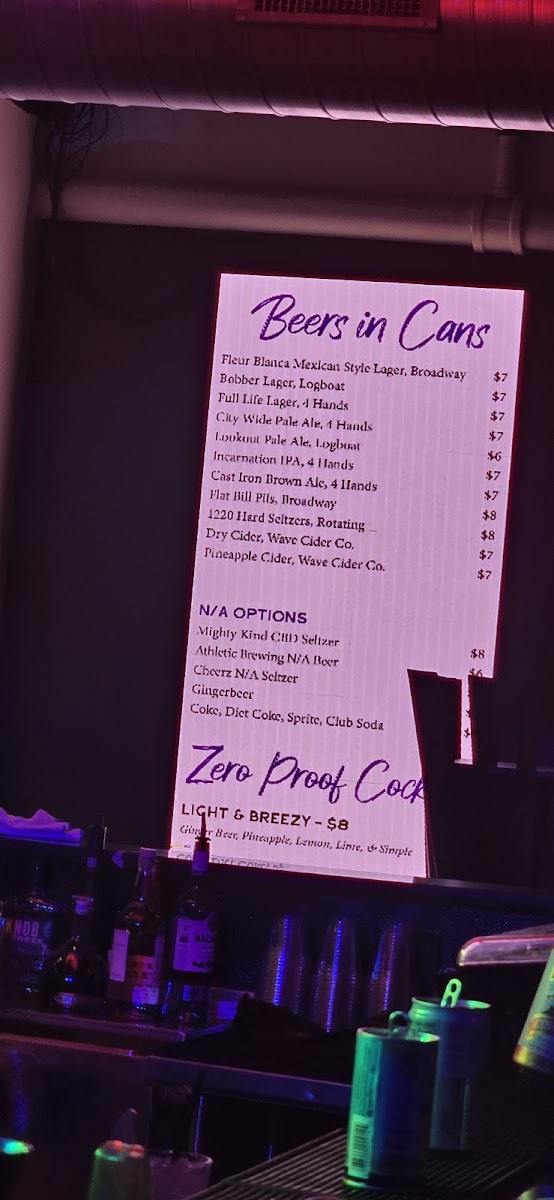 Beers in Cans
Fleur Blanca Mexican Style Lager, Broadway $7
Bobber Lager, Logboat $7
Full Life Lager, 4 Hands $7
City Wide Pale Ale, 4 Hands $7
Lookout Pale Ale, Logboat $6
Incarnation IPA, 4 Hands $7
Cast Iron Brown Ale, 4 Hands $7
Flat Bill Pils, Broadway $8
1220 Hard Seltzers, Rotating $8
Dry Cider, Wave Cider Co. $7
Pineapple Cider, Wave Cider Co. $7
N/A OPTIONS
Mighty Kind CBD Seltzer $8
Athletic Brewing N/A Beer $6
Cheerz N/A Seltzer
Gingerbeer
Coke, Diet Coke, Sprite, Club Soda
Zero Proof Cock
LIGHT & BREEZY - $8
Ginger Beer, Pineapple, Lemon, Lime, & Simple
KNOB